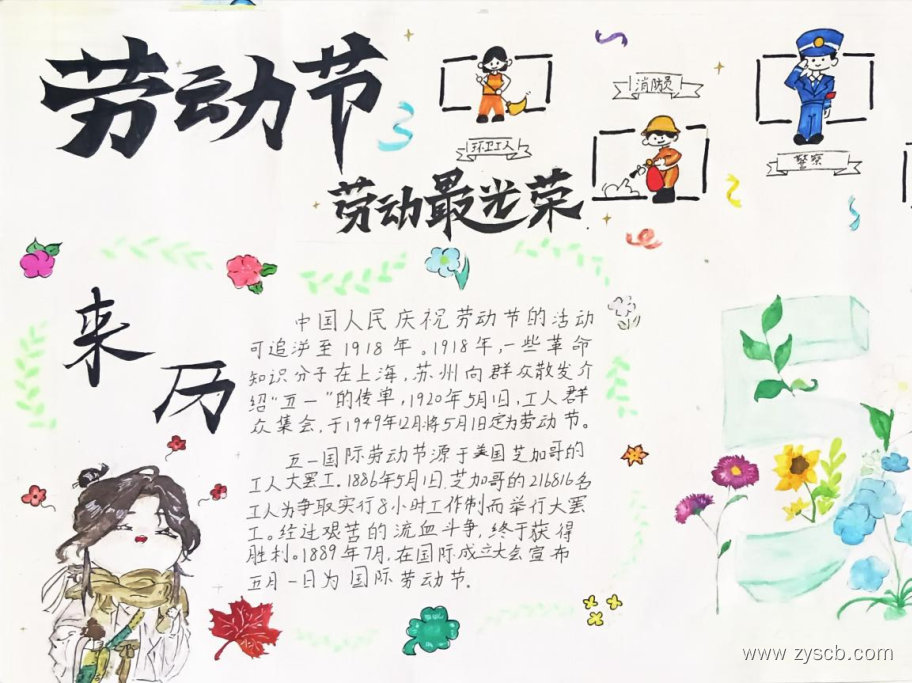 劳动节
劳动最光荣
环卫工人
消防员
警察
来历
中国人民庆祝劳动节的活动
可追涉至1918年。1918年,一些革命
知识分子在上海,苏州向群众散发介
绍“五一”的传单,1920年5月1日,工人群
众集会,于1949年12月将5月1日定为劳动节。
五一国际劳动节源于美国芝加哥的
工人大罢工。1886年5月1日,芝加哥的216816名
工人为争取实行8小时工作制而举行大罢
工。经过艰苦的流血斗争,终于获得
胜利。1889年7月,在国际成立大会宣布
五月一日为国际劳动节.
www.zyscb.com